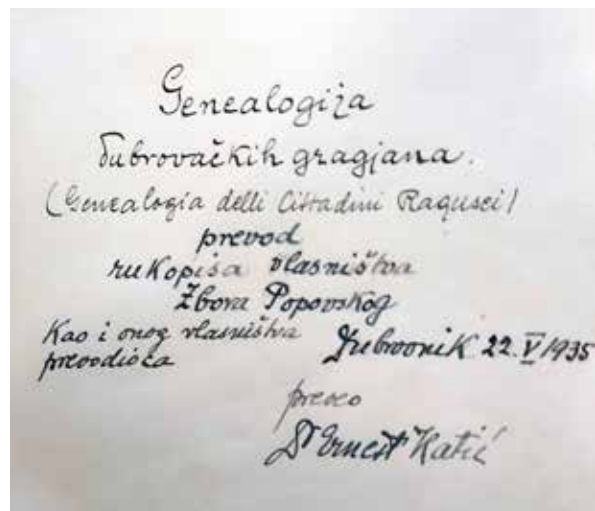 Genealogija
dubrovačkih gragjana.
(Genealogia delli Cittadini Ragusei)
prevod
rukopisa vlasništva
Zbora Popovskog
Kao i onog vlasništva
prevodioca
Dubrovnik 22. V 1935
preveo
Dr Ernest Katić